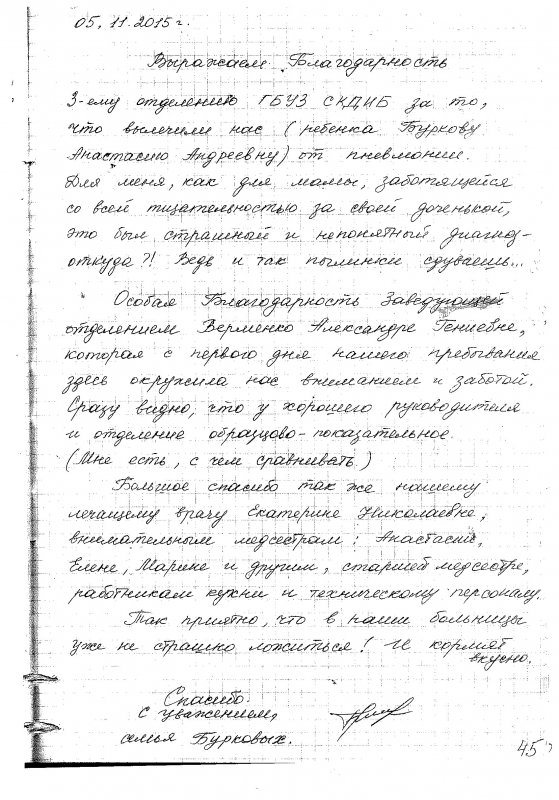 05.11.2015г.
Выражаем Благодарность
3-ему отделению ГБУЗ СКДИБ за то,
что вылечили нас (ребенка Буркову
Анастасию Андреевну) от пневмонии.
Для меня, как для мамы, заботящейся
со всей тщательностью за своей доченькой,
это был страшный и непонятный диагноз-
откуда?! Ведь и так пылинки сдуваешь...
Особая Благодарность Заведующей
отделением Верменко Александре Гениевне,
которая с первого дня нашего пребывания
здесь окружила нас вниманием и заботой.
Сразу видно, что у хорошего руководителя
и отделение образцово-показательное.
(Мне есть, с чем сравнивать.)
Большое спасибо так же нашему
лечащему врачу Екатерине Николаевне,
внимательным медсестрам: Анастасии,
Елене, Марине и другим, старшей медсестре,
работникам кухни и техническому персоналу.
Так приятно, что в наши больницы
уже не страшно ложиться! И кормят
вкусно.
Спасибо.
С уважением,
семья Бурковых.
45